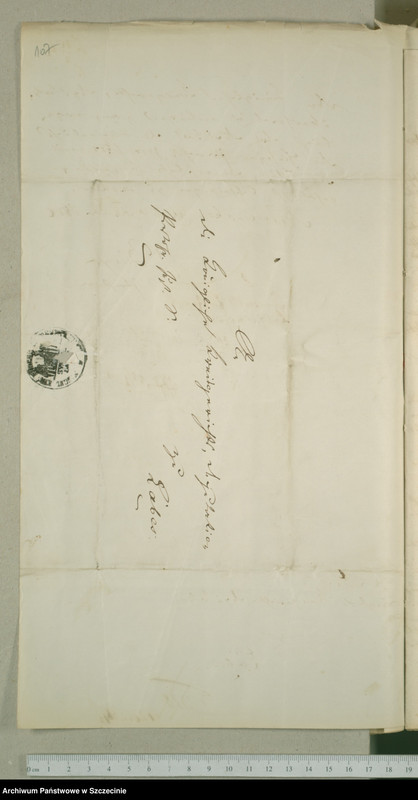 107
An
die Königliche Kreisgerichts Deputation
zu
Labes.
0 cm 1 2 3 4 5 6 7 8 9 10 11 12 13 14 15 16 17 18 19
Archiwum Państwowe w Szczecinie